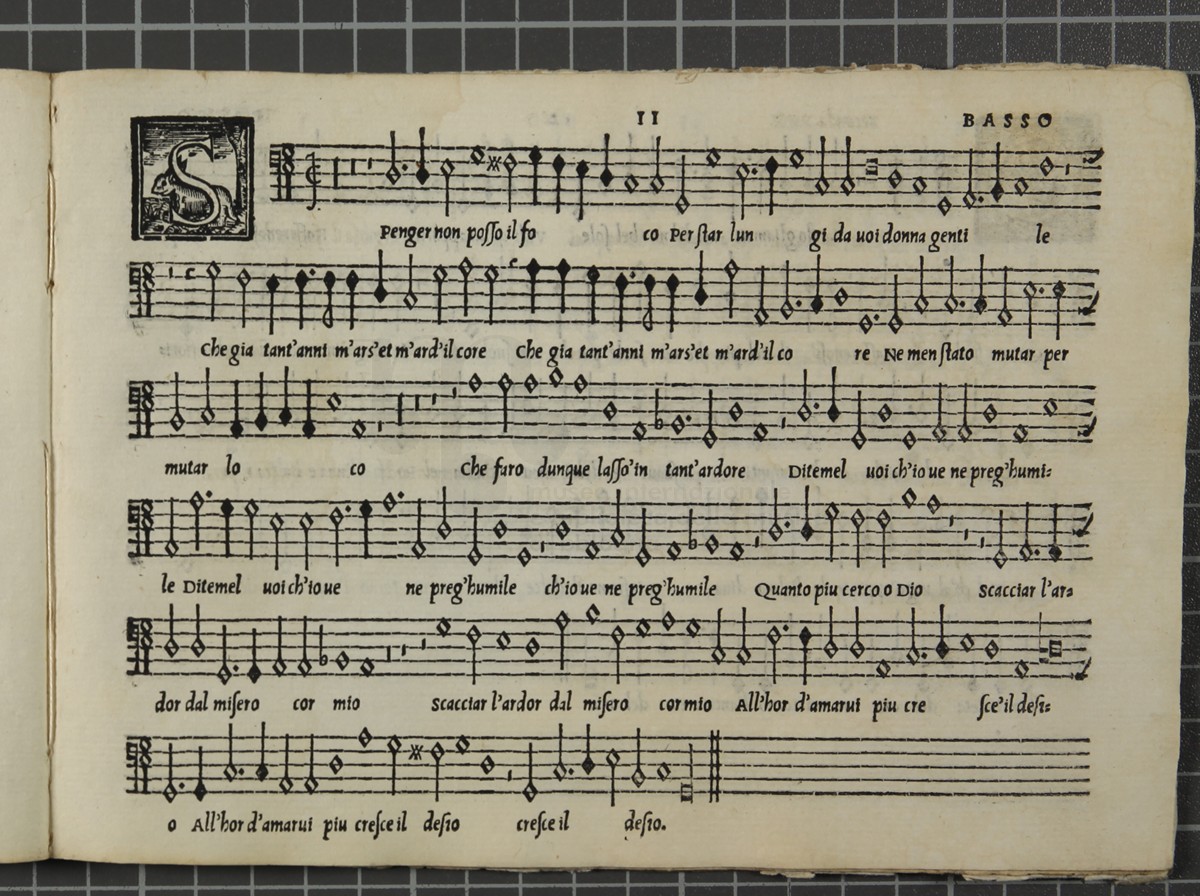 II BASSO
S Penger non poſſo il fo co Per ſtar lun gi da uoi donna genti le
Che gia tant'anni m'ars'et m'ard'il core Che gia tant'anni m'ars'et m'ard'il co re Ne men ſtato mutar per
mutar lo co Che faro dunque laſſo'in tant'ardore Ditemel uoi ch'io ue ne preg'humi:
le Ditemel uoi ch'io ue ne preg'humile ch'io ue ne preg'humile Quanto piu cerco o Dio scacciar l'ar:
dor dal miſero cor mio scacciar l'ardor dal miſero cor mio All'hor d'amarui piu cre ſce'il deſi:
o All'hor d'amarui piu creſce il deſio creſce il deſio.